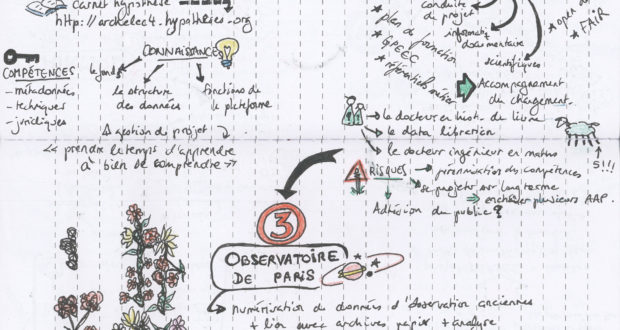 carnet hypothèse
http://archelec4.hypotheses.org
CONNAISSANCES
COMPÉTENCES
- métadonnées
- techniques
- juridiques
le fonds
la structure
des données
fonctions de
la plateforme
gestion du projet
<< prendre le temps d'apprendre
à bien se comprendre >>
conduite
de projet
informatique
documentaire
scientifiques
* plan de formation
* GPEEC
* référentiels métier
* open
* FAIR
Accompagnement
du changement.
le docteur en hist. du livre
la data librarian
le docteur ingénieur en maths
5!!!
RISQUES
pérennisation des compétences
se projeter sur long terme
enchaîner plusieurs AAP.
Adhésion du public?
3
OBSERVATOIRE
DE PARIS
numérisation de données d'observation anciennes
+ lien avec archives papier + analyse